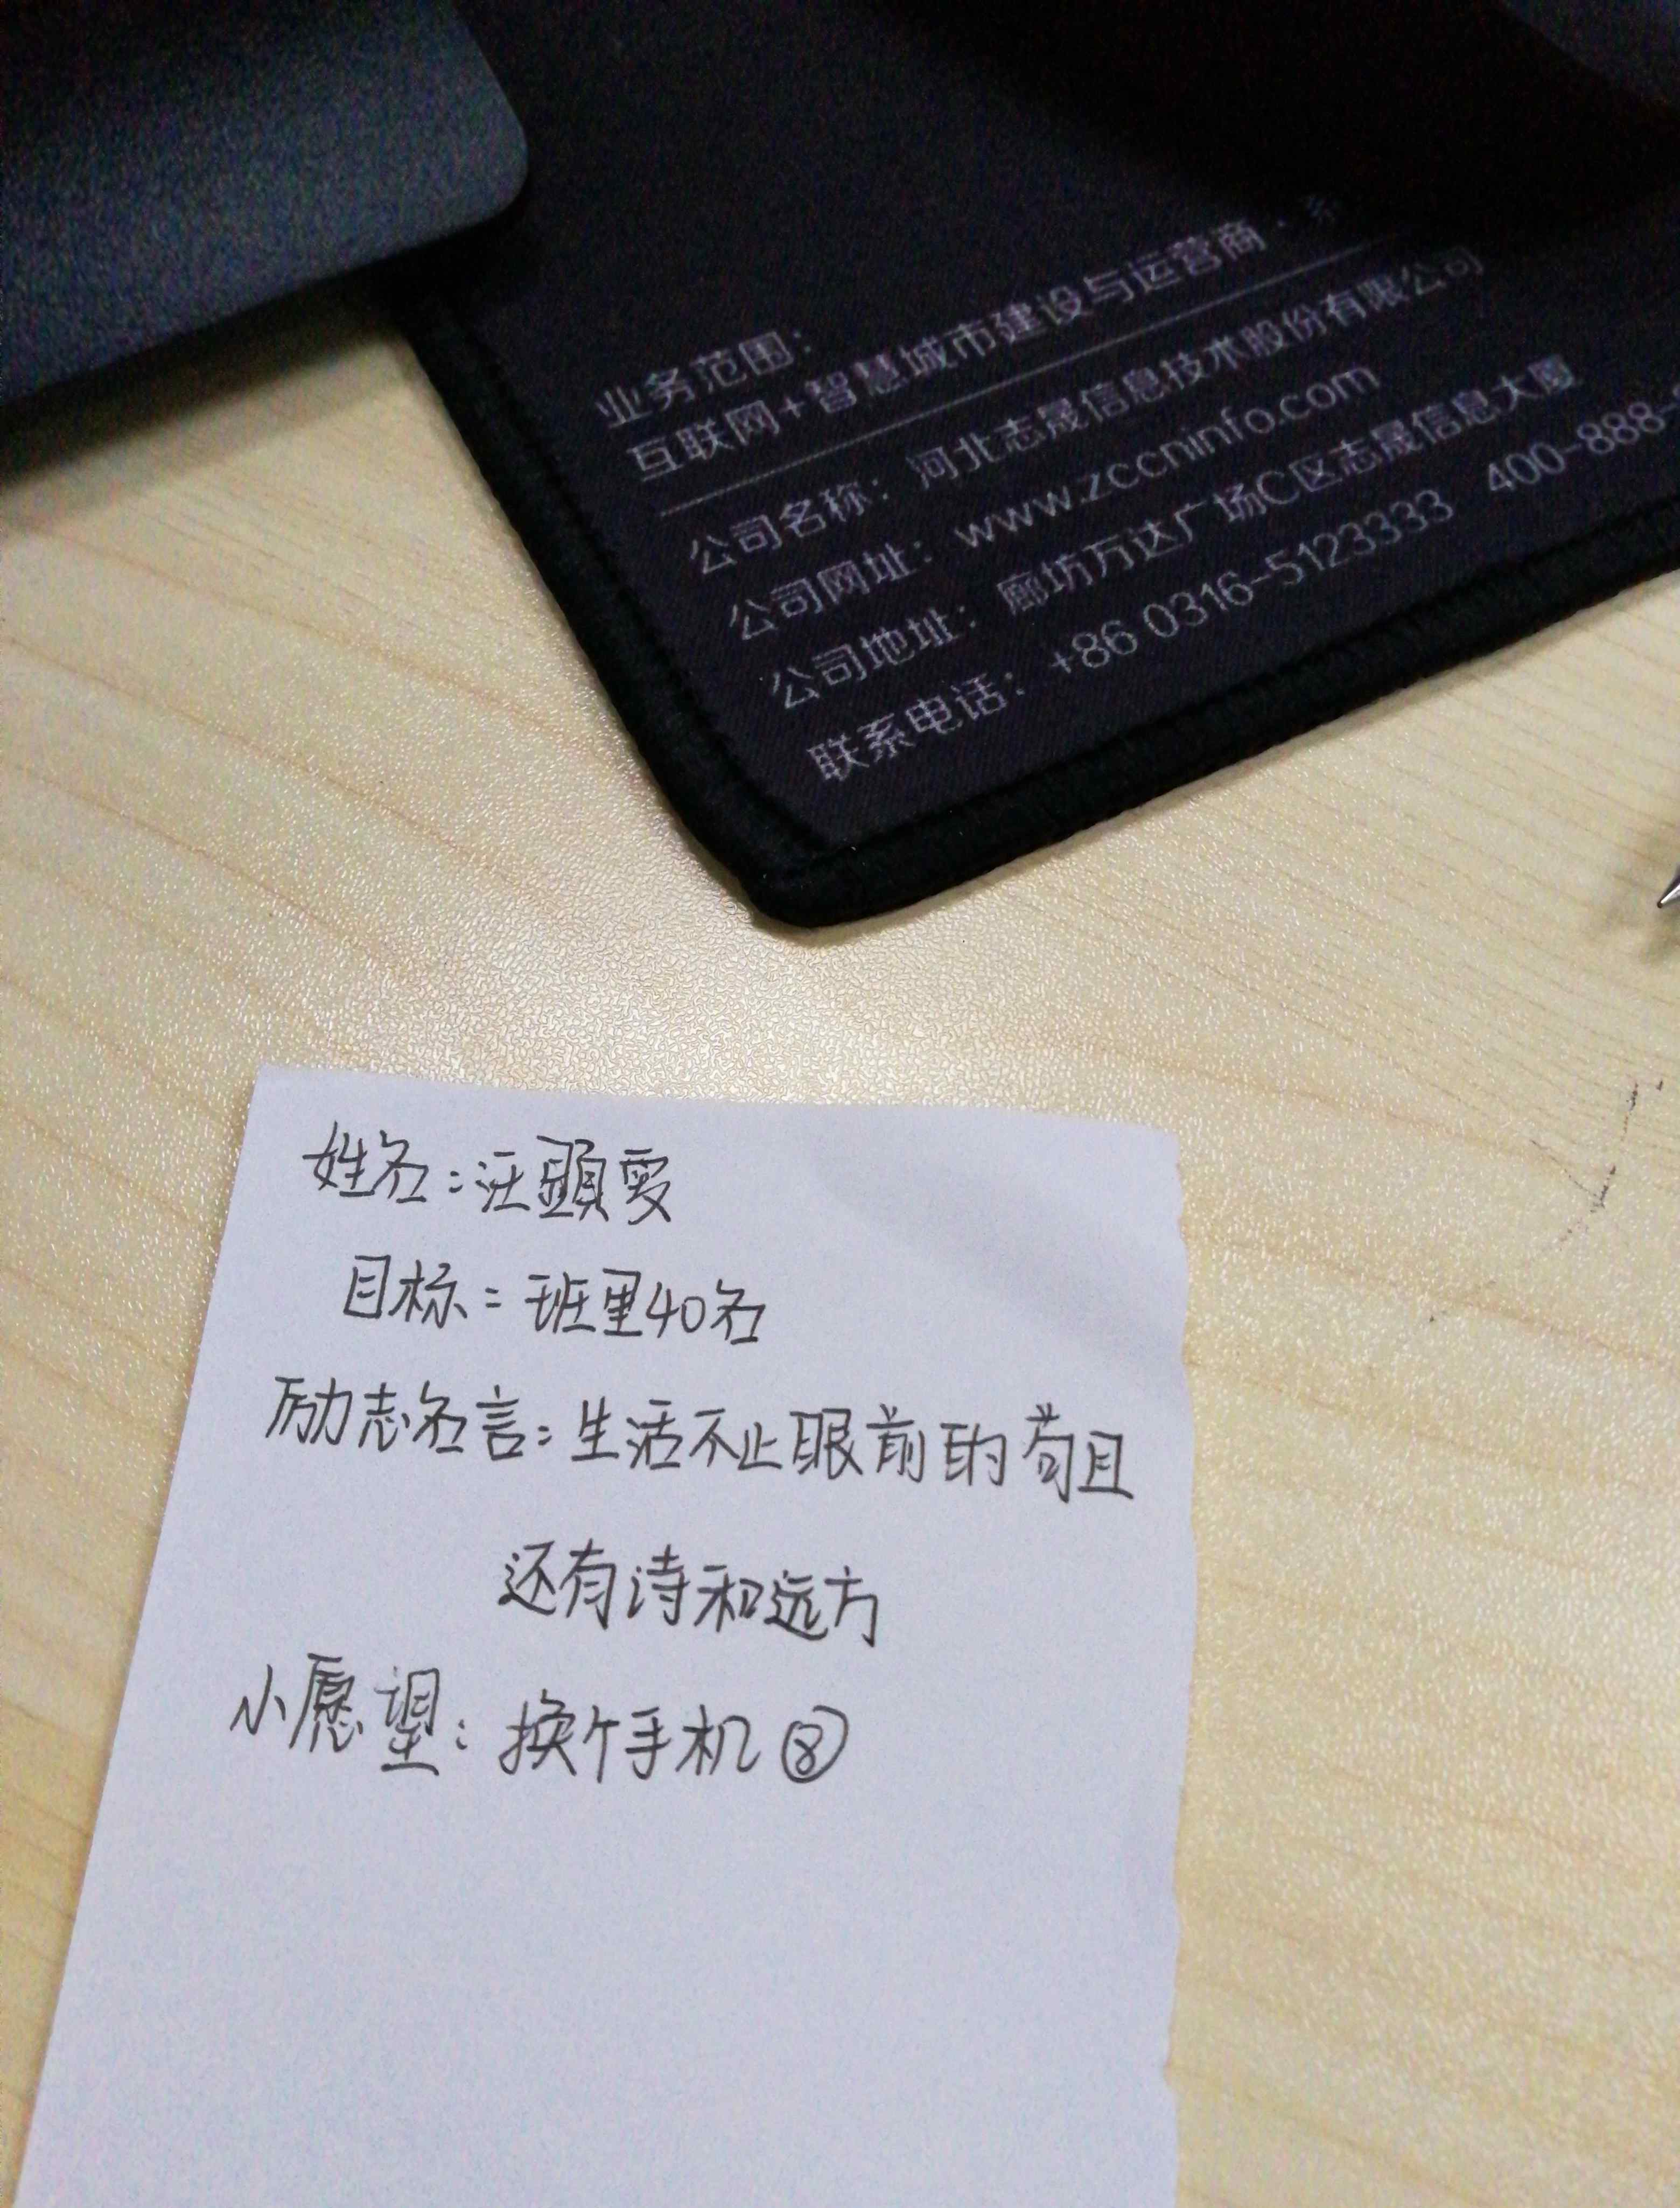 业务范围：
互联网+智慧城市建设与运营商 ·
公司名称：河北志晟信息技术股份有限公司
公司网址：www.zccninfo.com
公司地址：廊坊万达广场C区志晟信息大厦
联系电话：+86 0316-5123333 400-888-
姓名：汪顕雯
目标：班里40名
励志名言：生活不止眼前的苟且
还有诗和远方
小愿望：换个手机